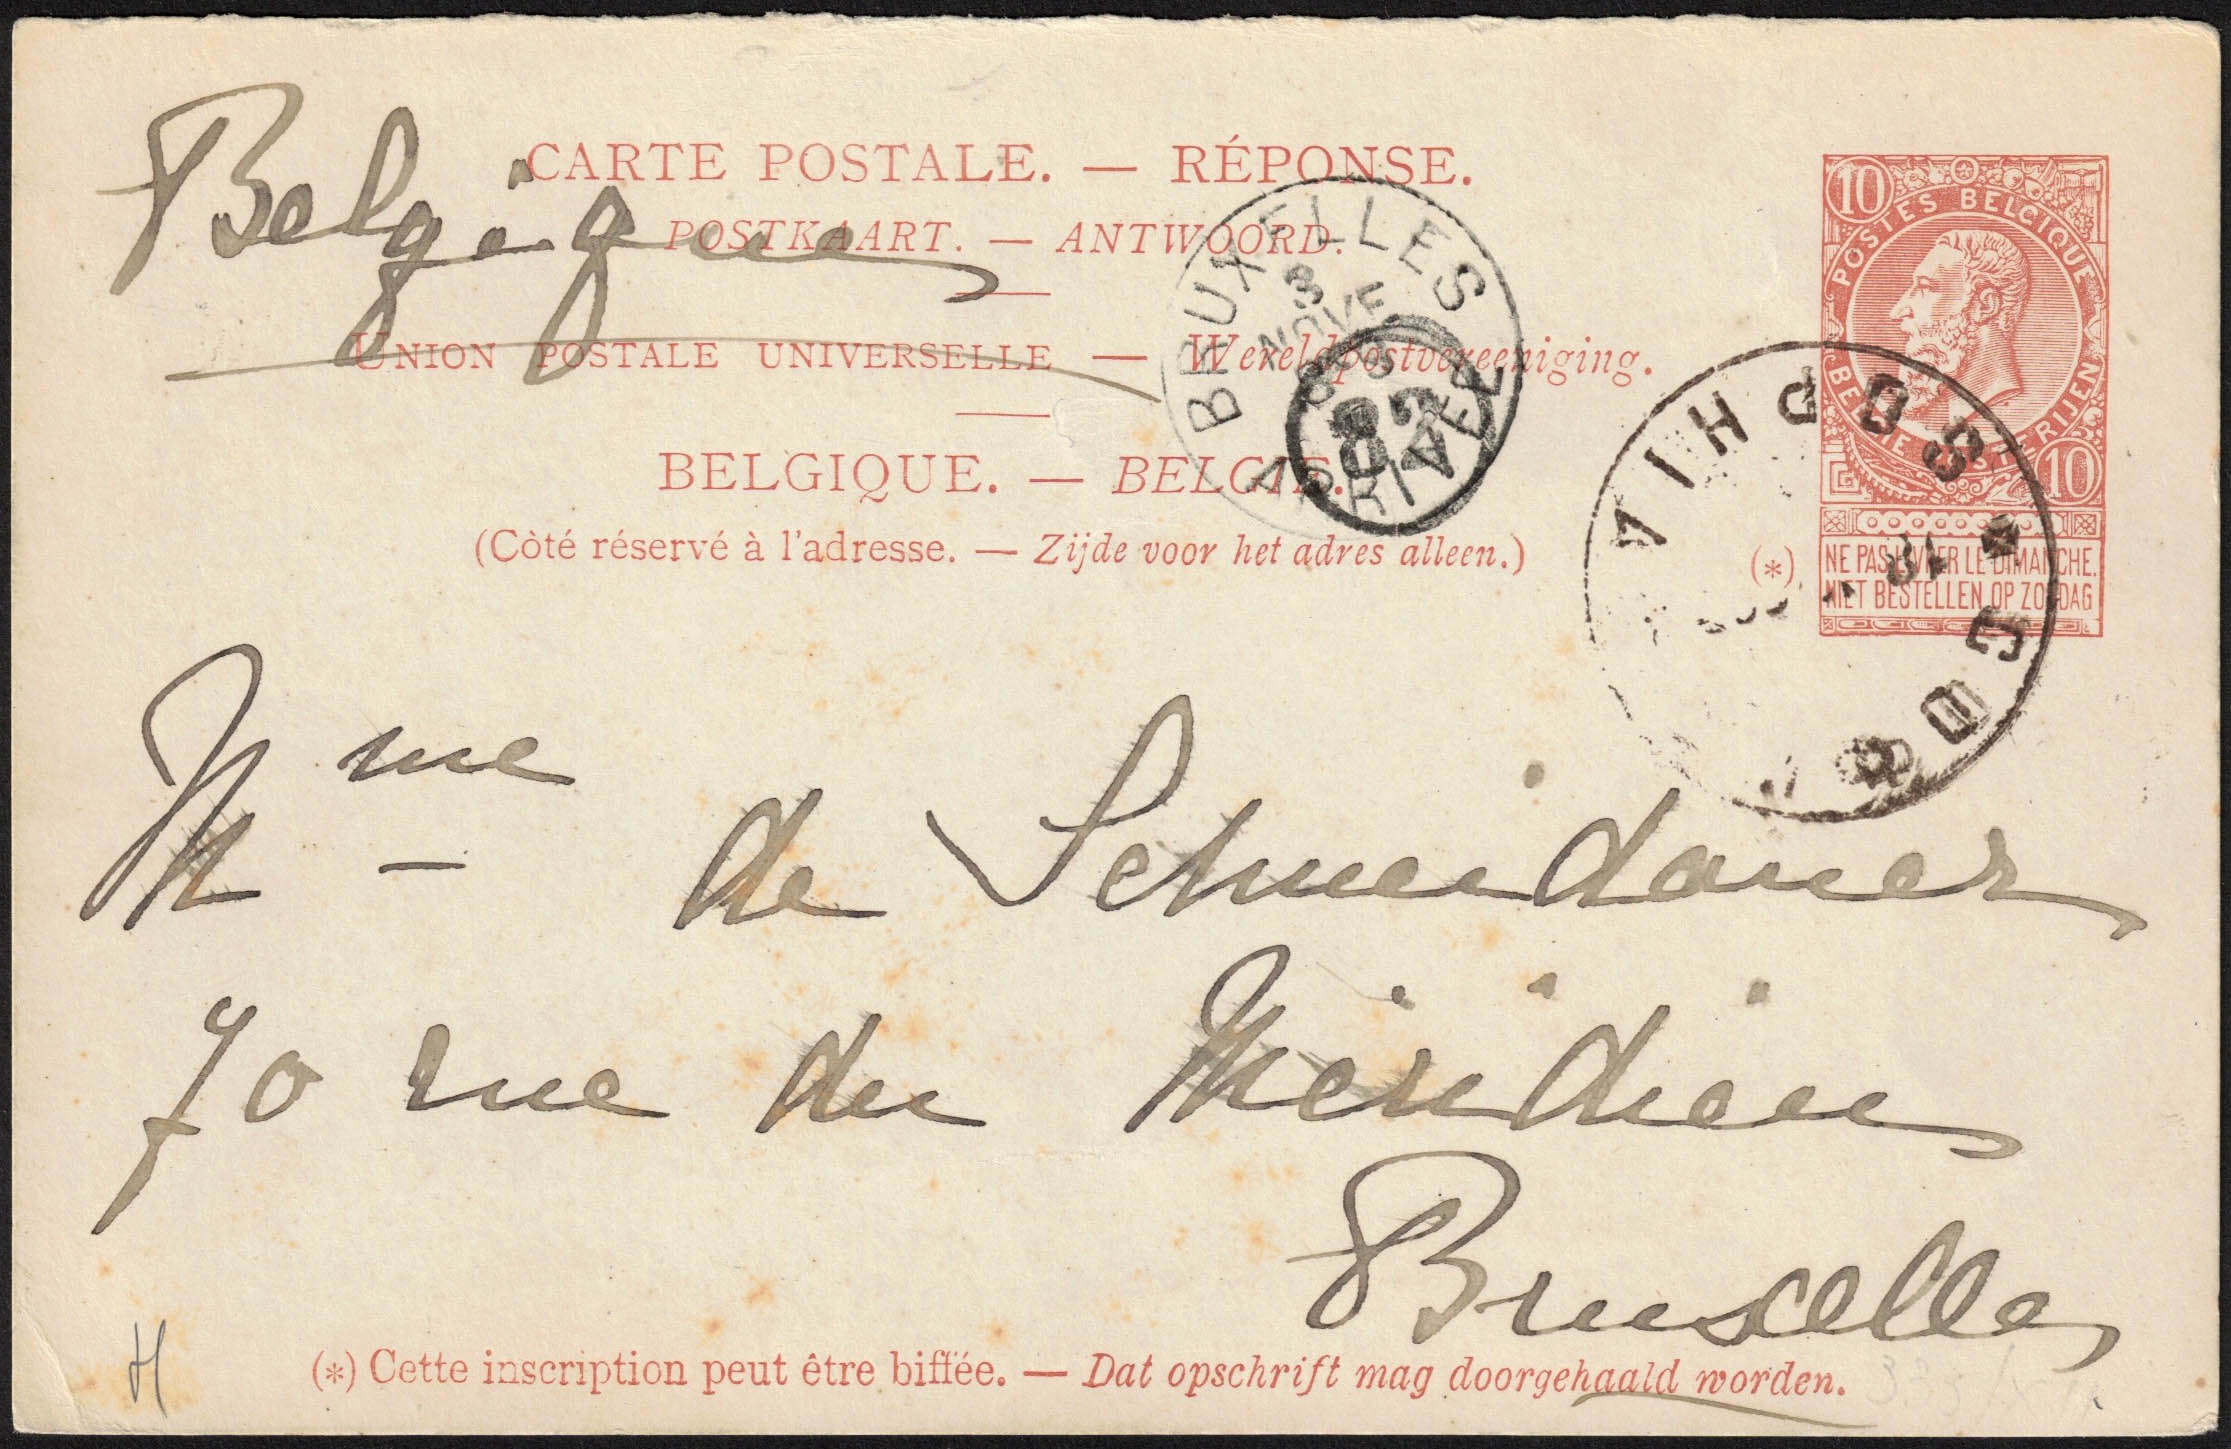 CARTE POSTALE. — RÉPONSE.
POSTKAART. — ANTWOORD.
Belgique
UNION POSTALE UNIVERSELLE — Wereldpostvereeniging.
BELGIQUE. — BELGIE.
(Côté réservé à l'adresse. — Zijde voor het adres alleen.)
10
POSTES BELGIQUE
BELGIE POSTERIJEN
10
(*)
NE PAS LIVRER LE DIMANCHE.
NIET BESTELLEN OP ZONDAG
BRUXELLES
3
NOVE
ARRIVEE
SOPHIA
Mme de Schneidauer
70 rue du Méridien
Bruxelles
H
(*) Cette inscription peut être biffée. — Dat opschrift mag doorgehaald worden.